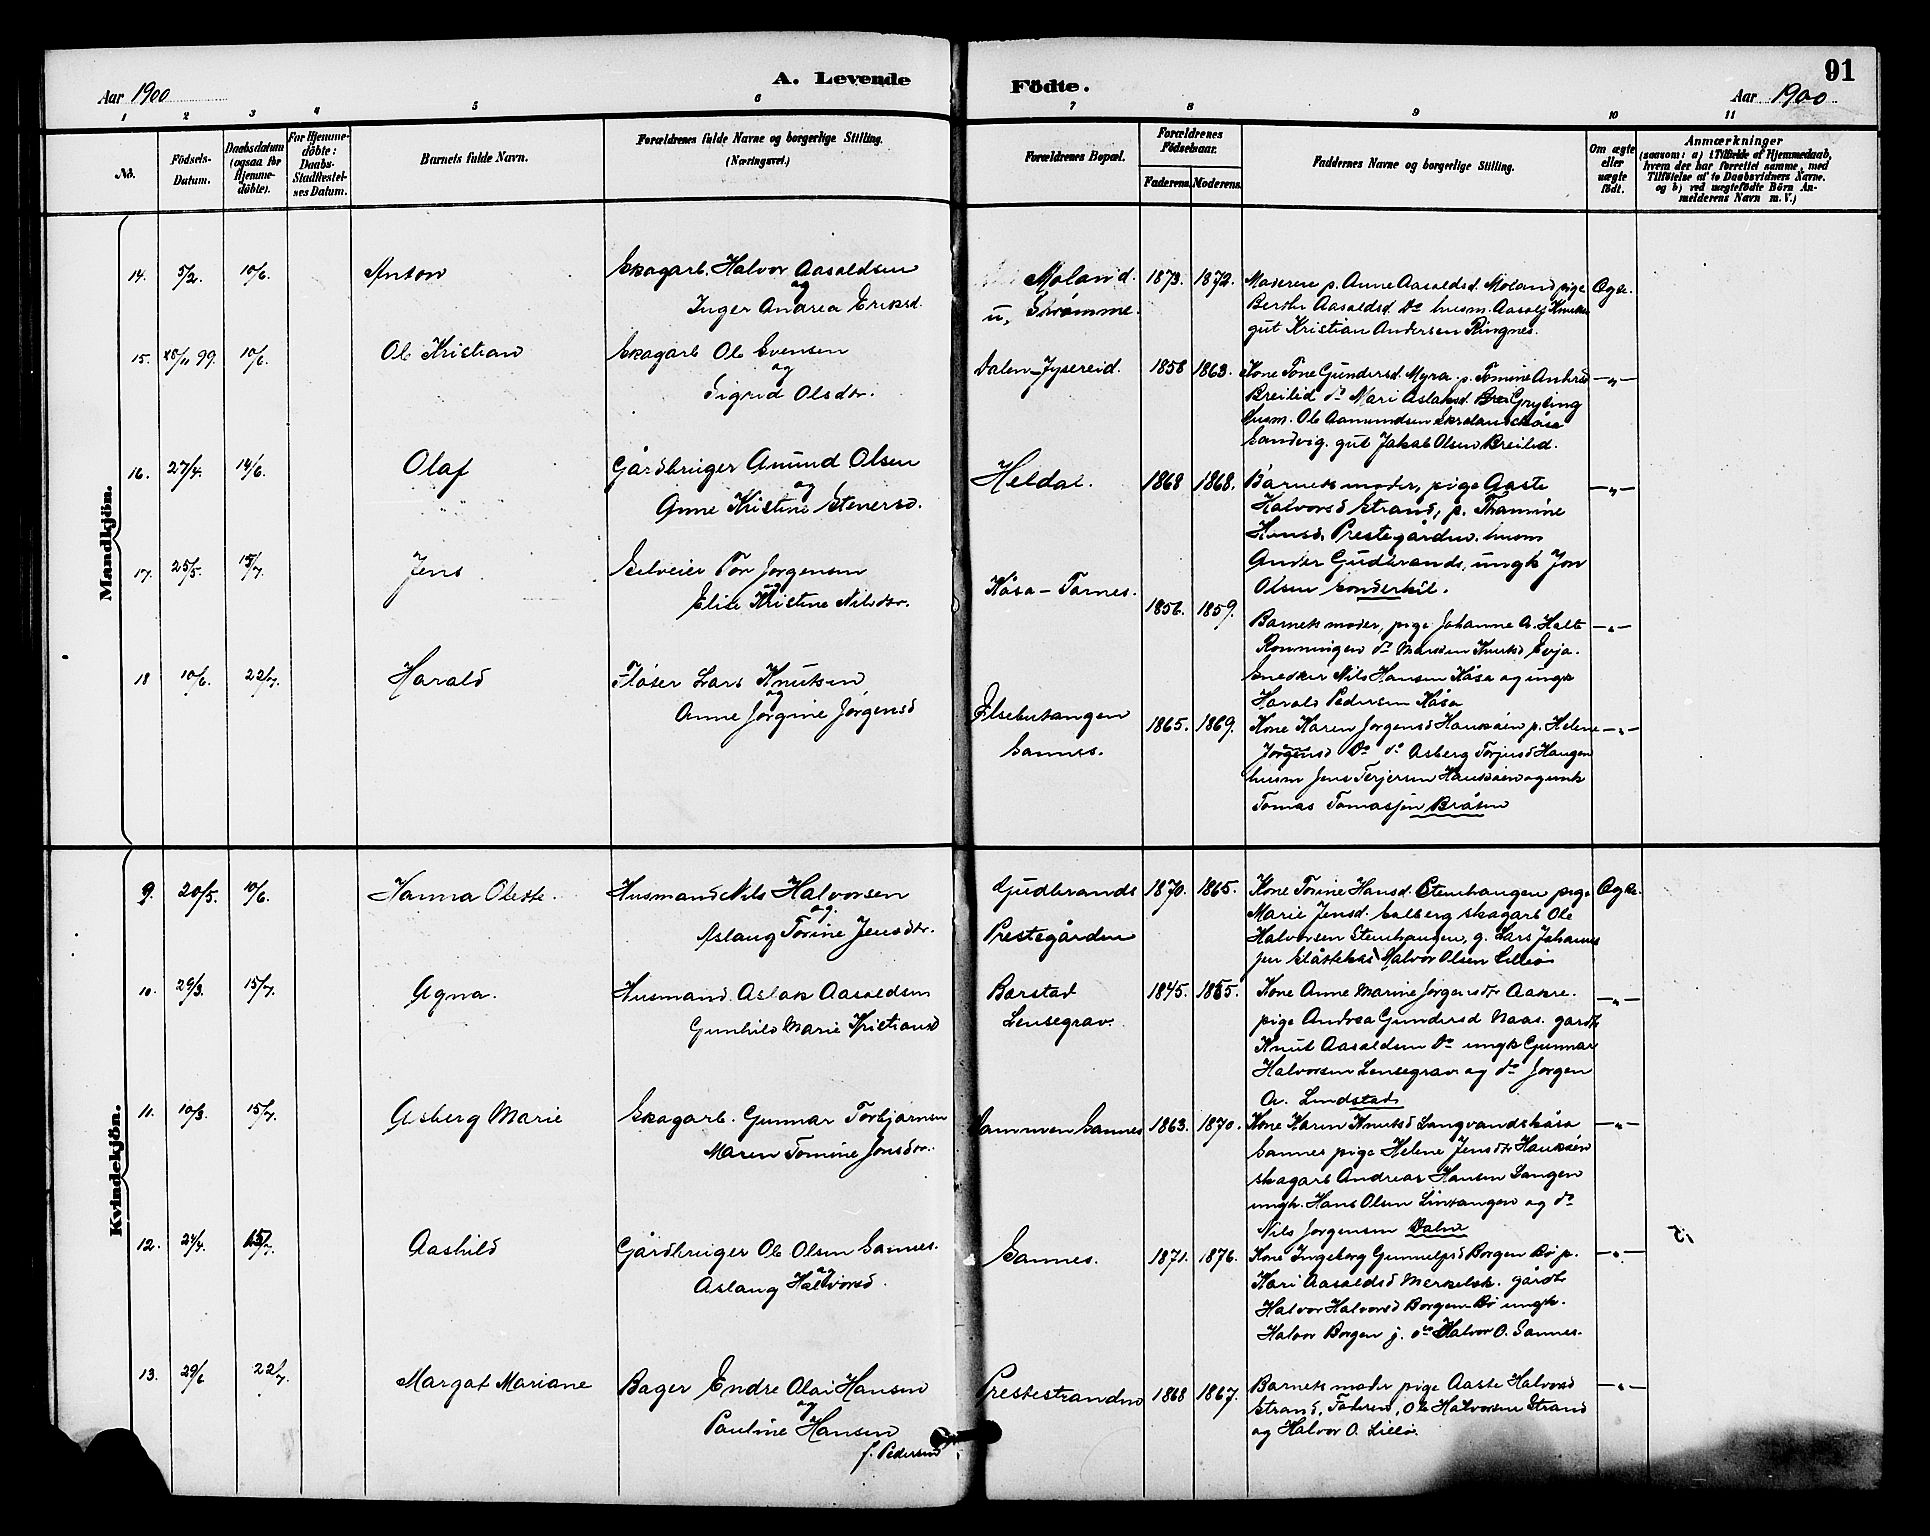 91
A. Levende Födte.
Aar 1900
Aar 1900
1 2 3 4 5 6 7 8 9 10 11
No.
Födsels-Datum.
Daabsdatum (ogsaa for Hjemmedöbte).
For Hjemmedöbte: Daabs-Stadfæstelses Datum.
Barnets fulde Navn.
Forældrenes fulde Navne og borgerlige Stilling. (Næringsvei.)
Forældrenes Bopæl.
Forældrenes Födselsaar.
Faderens. Moderens.
Faddernes Navne og borgerlige Stilling.
Om ægte eller uægte födt.
Anmærkninger
(saasom: a) i Tilfælde af Hjemmedaab, hvem der har forrettet samme, med Tilföielse af to Daabsvidners Navne. og b) ved uægtefödte Börn Anmelderens Navn m. V.)
Mandkjön.
14. 5/2. 10/6. Anton
Skogarb. Halvor Aasoldsen
og
Inger Andrea Eriksd.
Moland.
u, Strømme.
1873. 1872.
Moderens p. Anne Aasoldsd. Moland pige
Berthe Aasoldsd. do husm. Aasolf Knuts
gut Kristian Andersen Ringnes.
Ægte.
15. 28/11 99. 10/6. Ole Kristian
Skogarb Ole Evensen
og
Sigrid Olsdtr.
Dalen Jysereid.
1858 1863.
Kone Tone Gundersd. Myra p. Tomine
Breilid do Mari Aslaksd.
husm. Ole Aamundsen
Sandvig. gut Jakob Olsen Breilid.
—"—
16. 27/4. 14/6. Olaf
Gårdbruger Anund Olsen
og
Anne Kristine Stenersd.
Heldal.
1868 1868.
Barnets moder, pige Aaste
Halvorsd Strand, p. Thamine
Hansd. Prestegården, husm
Ander Gudbrands, ungk Jon
Olsen Sonderkil.
—"—
17. 25/5. 15/7. Jens
Selveier Tor Jorgensen
og
Elise Kristine Nilsdtr.
Kåsa – Tornes.
1856. 1859.
Barnets moder, pige Johanne A. Holte
Ronningen do Maren Knutsd Evja.
Snedker Nils Hansen Kåsa og ungk
Harald Pedersen Kåsa
—"—
18 10/6. 22/7. Harald
Fløser Lars Knutsen
og
Anne Jørgine Jørgensd
Ilsebutangen
Sannes.
1865. 1869.
Kone Karen Jorgensd Haukåen p. Helene
Jorgensd do do Asberg Torjusd Haugen
husm Jens Terjesen Haukåen og unk
Tomas Tomassen Bråten
—"—
Kvindekjön.
9. 20/5. 10/6. Hanna Olette.
Husmand Nils Halvorsen
og
Aslaug Torine Jensdtr.
Gudbrands
Prestegården
1870. 1865.
Kone Torine Hansd. Stenhaugen pige
Marie Jensd. Solberg skogarb Ole
Halvorsen Stenhaugen, g. Lars Johannes
sen Halvor Olsen Lilleo
Ægte.
10. 29/3. 15/7. Agna.
Husmand. Aslak Aasoldsen
Gunhild Marie Kristiansd
Borstad
Lensegrav.
1845. 1855.
Kone Anne Marine Jorgensdtr Aakre.
pige Andrea Gundersd Naas. gardb
Knut Aasoldsen do ungk Gunnar
Halvorsen Lensegrav og do Jorgen
A. Lindstad
—"—
11. 10/3. 15/7. Asberg Marie
Skogarb. Gunnar Torbjornsen
Maren Tomine Jonsdtr.
Sannes
1863. 1870.
Kone Karen Knutsd Langvandskåsa
Sannes pige Helene Jensdtr Haukåen
skogarb Andreas Hansen Langen
ungk. Hans Olsen Lintangen og do
Nils Jorgensen Dalen
—"—
12. 24/4. 15/7. Aashild
Gårdbruger Ole Olsen Sannes.
og
Aslaug Halvorsd.
Sannes.
1871. 1876.
Kone Ingeborg Gunnulfsd Borgen Bø p.
Kari Aasoldsd Merkelsk. gårdb
Halvor Halvorsd Borgen Bø ungk.
Halvor Borgen j. do Halvor O. Sannes.
—"—
15
13. 29/6 22/7. Margot Mariane
Bager Endre Olai Hansen
og
Pauline Hansen
f. Pedersen
Prestestranden
1868 1867.
Barnets moder pige Aaste Halvorsd
Strand, Faderen, Ole Halvorsen Strand
og Halvor O. Lilleo.
—"—